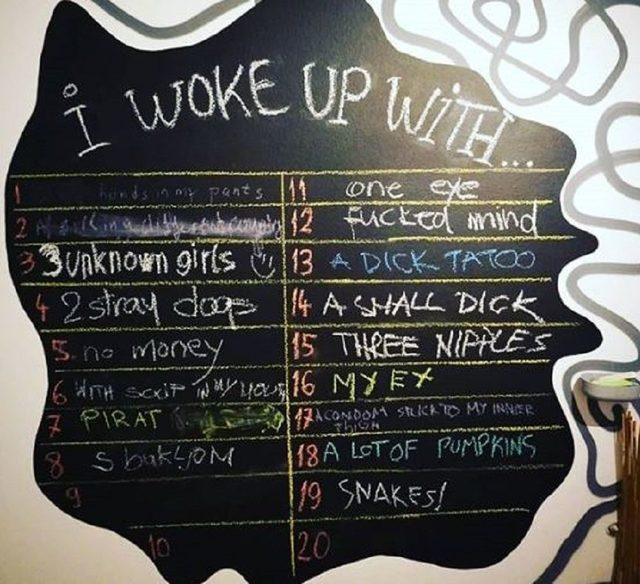 i WOKE UP WITH...
1 hands in my pants
2
3 3 unknown girls
4 2 stray dogs
5. no money
6 WITH IN MY
7 PIRAT
8 S bukljom
9
10
11 one eye
12 fucked mind
13 A DICK TATOO
14 A SMALL DICK
15 THREE NIPPLES
16 MY EX
17 A CONDOM STICK TO MY INNER
THIGH
18 A LOT OF PUMPKINS
19 SNAKES!
20